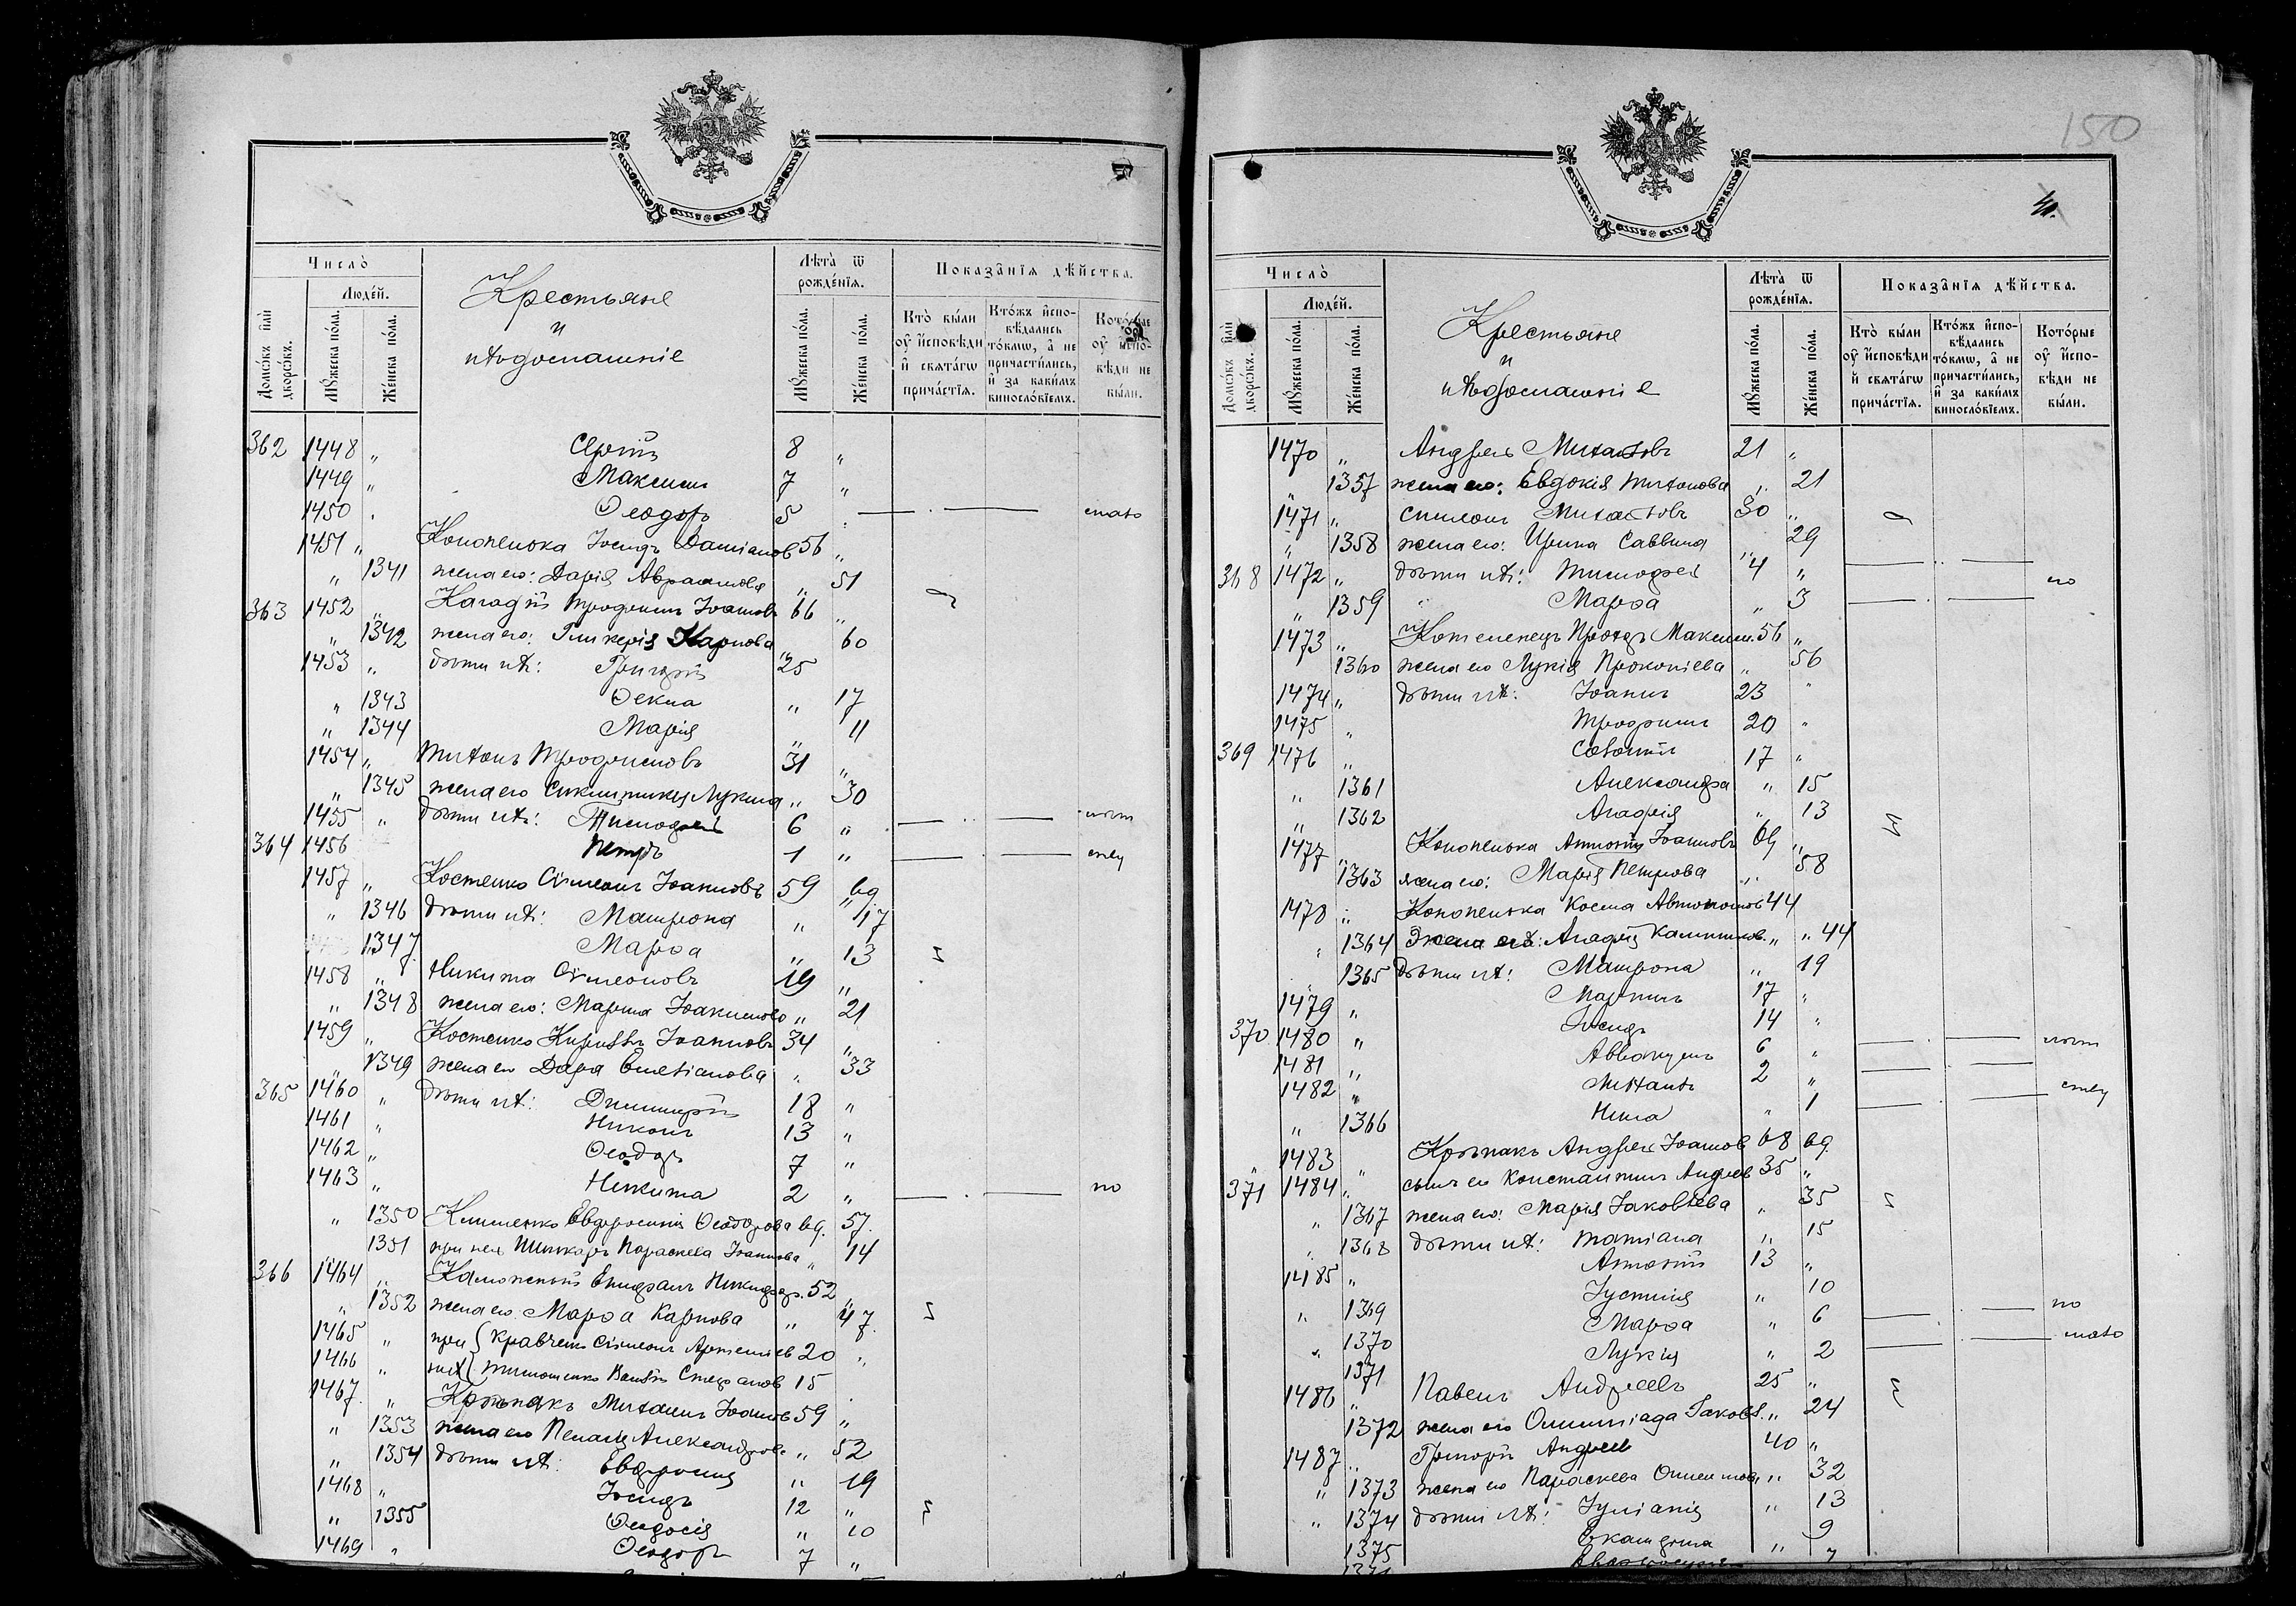 Число̀
Крестьяне
и
ихъ домашніе
Лѣта̀ ѿ рожде́нїѧ.
Показа̑нїѧ дѣ́йства.
Домѡ́въ и҆лѝ дворѡ́въ.
Люде́й.
Мꙋ́жеска по́ла.
Же́нска по́ла.
Мꙋ́жеска по́ла.
Же́нска по́ла.
Кто̀ бы́ли оу҆ и҆сповѣ́ди и҆ свѧта́гѡ прича́стїѧ.
Кто́жъ и҆сповѣ́дались то́кмѡ, а҆ не причасти́лись, и҆ за каки́мъ виносло́вїемъ.
Кото́рые оу҆ и҆сповѣ́ди не бы́ли.
362 1448 " Сергій 8 "
1449 " Максимъ 7 "
1450 Ѳеодоръ 5 мало
1451 " Кононенко Іосифъ Даміановъ 56 "
" 1341 жена его: Дарія Авраамова " 51
363 1452 " Трофимъ Іоанновъ 66 "
" 1342 жена его: Гликерія Карпова " 60
1453 " дѣти ихъ: Григорій 25
" 1343 Ѳекла " 17
" 1344 Марія " 11
1454 " Титъ Трофимовъ 31 "
" 1345 жена его Лукина " 30
1455 " дѣти ихъ: Тимофей 6 "
364 1456 Петръ 1 "
1457 " Костенко Сѵмеонъ Іоанновъ 59 вд.
" 1346 дѣти ихъ: Матрона " 17
1347 Марѳа " 13
1458 " Никита Сѵмеоновъ 19 "
" 1348 жена его: Марина Іоакимова " 21
1459 " Костенко Кириллъ Іоанновъ 34 "
" 1349 жена его Дарія Емеліанова " 33
365 1460 " дѣти ихъ: Димитрій 18 "
1461 " Никонъ 13 "
1462 " Ѳеодоръ 7 "
1463 " Никита 2 "
" 1350 Клименко Евфросинія Ѳеодорова вд. 57.
1351 при ней Параскева Іоаннова " 14
366 1464 Епифанъ Никифор. 52 "
" 1352 жена его Марѳа Карпова " 47.
1465 " при Кравченко Сѵмеонъ Артеміевъ 20 "
1466 " нихъ Тимошенко Стефановъ 15
1467. " Крѣпакъ Михаилъ Іоанновъ 59 "
" 1353 жена его Пелагія Александрова " 52
" 1354 дѣти ихъ: Евфросинія " 19
1468 " Іосифъ 12 "
" 1355 Ѳеодосія " 10
1469 " Ѳеодоръ 7 "
150
Число̀
Крестьяне
и
ихъ домашніе
Лѣта̀ ѿ рожде́нїѧ.
Показа̑нїѧ дѣ́йства.
Домѡ́въ и҆лѝ дворѡ́въ.
Люде́й.
Мꙋ́жеска по́ла.
Же́нска по́ла.
Мꙋ́жеска по́ла.
Же́нска по́ла.
Кто̀ бы́ли оу҆ и҆сповѣ́ди и҆ свѧта́гѡ прича́стїѧ.
Кто́жъ и҆сповѣ́дались то́кмѡ, а҆ не причасти́лись, и҆ за каки́мъ виносло́вїемъ.
Кото́рые оу҆ и҆сповѣ́ди не бы́ли.
1470 " Андрей Михаиловъ 21 "
" 1357 жена его: Евдокія Титова " 21
1471 " Симеонъ Михаиловъ 30 "
" 1358 жена его: Ирина Саввина " 29
368 1472 " дѣти ихъ: Тимофей 4 "
" 1359 Марѳа " 3
1473 " Котеленецъ Максим. 56 "
1360 жена его Лукія Прокопіева " 56
1474 " дѣти ихъ: Іоаннъ 23 "
1475 " Трофимъ 20 "
369 1476 " 17 "
" 1361 Александра " 15
" 1362 Агафія " 13
1477 " Кононенко Антоній Іоанновъ 69 "
1363 жена его: Марія Петрова " 58
1478 " Кононенко Косма Антоновъ 44
" 1364 жена его: Агафія " 44
1365 дѣти ихъ: Матрона " 19
1479 " Мартинъ 17 "
370 1480 " Іосифъ 14 "
1481 " Аввакумъ 6 "
1482 " Михаилъ 2 "
" 1366 Нина " 1
1483 " Крѣпакъ Андрей Іоанновъ 68 вд.
371 1484 " сынъ его Константинъ Андреевъ 35 "
" 1367 жена его: Марія Іаковлева " 35
" 1368 дѣти ихъ: Татіана " 15
1485 " Антоній 13 "
" 1369 Іустинія " 10
" 1370 Марѳа " 6
1371 Лукія " 2
1486 " Павелъ Андреевъ 25 "
1372 жена его Олимпіада Іаковл. " 24
1487 " Григорій Андреевъ 40 "
" 1373 жена его Параскева " 32
" 1374 дѣти ихъ: Іуліанія " 13
1375 Екатерина " 9